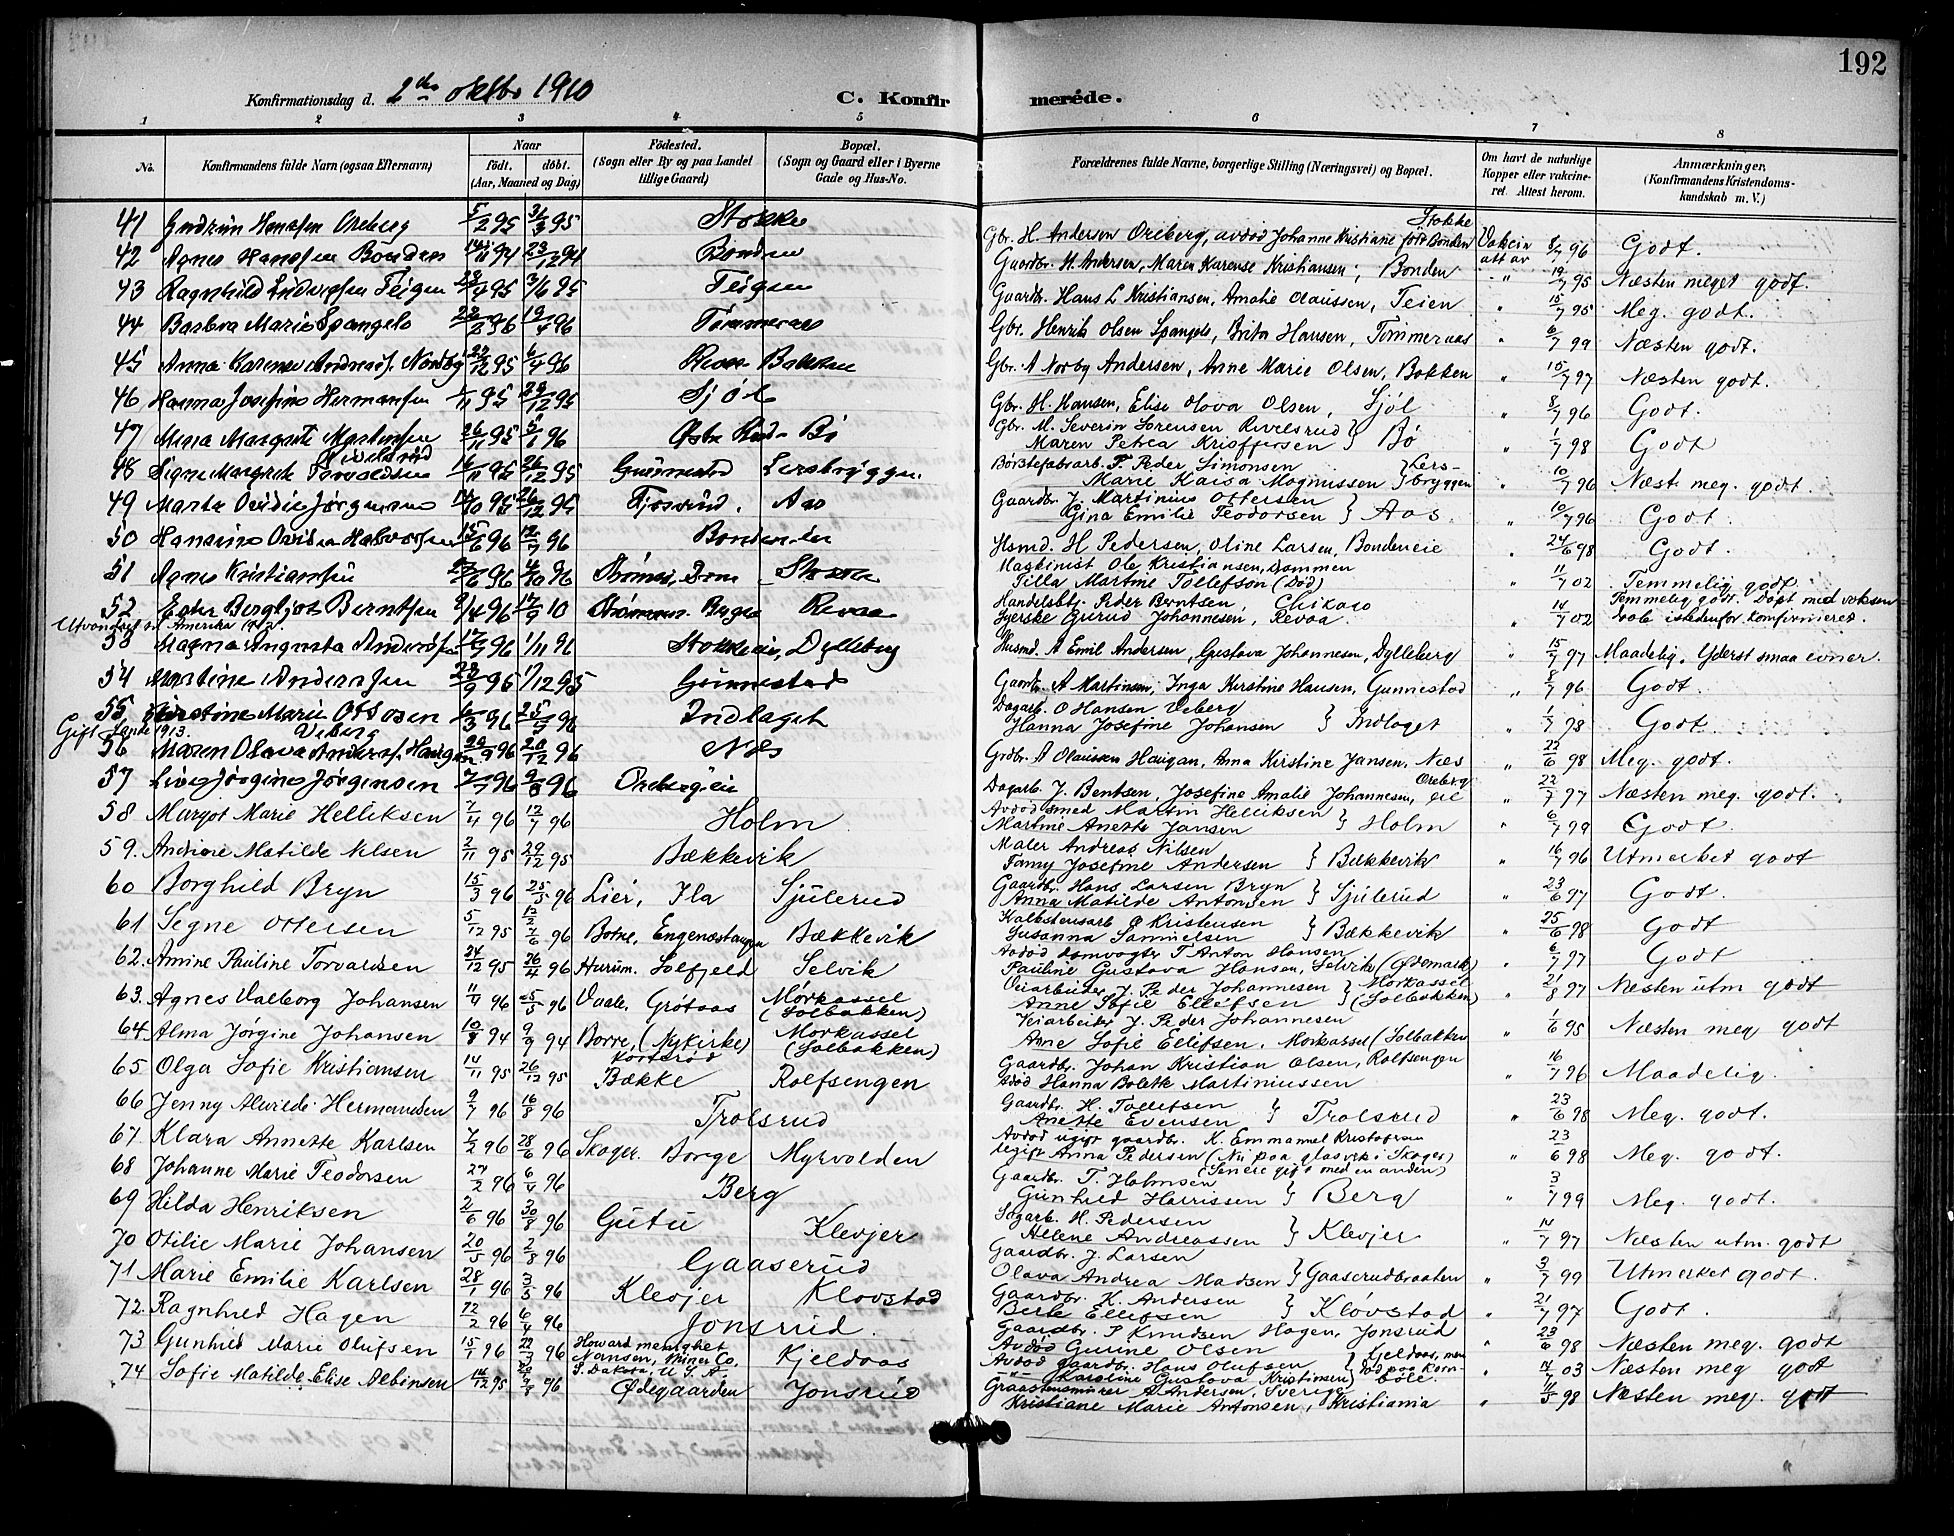 192
Konfirmationsdag d. 2den oktbr 1910 C. Konfirmerede.
1 2 3 4 5 6 7 8
No. Konfirmandens fulde Navn (ogsaa Efternavn) Naar født. døbt. (Aar, Maaned og Dag) Fødested. (Sogn eller By og paa Landet tillige Gaard) Bopæl. (Sogn og Gaard eller i Byerne Gade og Hus-No. Forældrenes fulde Navne, borgerlige Stilling (Næringsvei) og Bopæl. Om havt de naturlige Kopper eller vakcineret. Attest herom. Anmærkninger, (Konfirmandens Kristendomskundskab m. V.)
41 Gudrun Hansen Oreberg 5/2 95 31/3 95 Stokke Gbr. H. Andersen Oreberg, avdød Johanne Kristiane født Bonden Stokke Vakcin att av 8/7 96 Godt.
42 Agnes Hansen Bonden 14/11 94 23/12 94 Bonden Gaardbr. H. Andersen, Maren Karense Kristiansen, Bonden " 19/7 95 Næsten meget godt.
43 Ragnhild Teigen 28/4 95 3/6 95 Teigen Gaardbr. Hans L Kristiansen, Amalie Olaussen, Teien " 15/7 95 Meg. godt.
44 Barbra Marie Spangelo 19/4 96 Tømmeraas Gbr. Henrik Olsen Spangelo, Brita Hansen, Tømmeraas " 6/7 99 Næsten godt.
45 Anna Karense Andreas. Nordby 27/12 95 6/4 96 Bakken Gbr. A Norby Andersen, Anne Marie Olsen, Bakken " 15/7 97 Næsten godt.
46 Hanna Josefine Hermansen 1/11 95 29/12 95 Sjøl Gbr. H. Hansen, Elise Olava Olsen, Sjøl " 8/7 96 Godt.
47 Mina Margrete Martinsen Rivelsrød 26/11 95 5/1 96 Bø Gbr. M. Severin Sørensen Rivelsrud } Maren Petrea Kristoffersen } Bø " 1/7 98 Godt
48 Signe Margrete Torvaldsen 16/11 95 26/12 95 Gunnestad Lersbryggen Børstefabrarb. T. Peder Simonsen } Marie Kaisa Magnussen } Lersbryggen " 10/7 96 Næst. meg. godt.
49 Marta Ovidie Jørgensen 14/10 95 26/12 95 Fjøsrud. Aas Gaardbr. J. Martinius Ottersen Gina Emilie Teodorsen } Aas. " 10/7 96 Godt.
50 Hansine Ovidia Halvorsen 15/6 96 12/7 96 Bondeneie Husmd. H Pedersen, Oline Larsen, Bondeneie " 24/6 98 Godt.
51 Agnes Kristiansen 27/6 96 4/10 96 Maskinist Ole Kristiansen, Dammen Tilla Martine Tollefson (død) " 11/7 02 Temmelig godt.
52 Ester Bergljot Berntsen 9/4 96 17/9 10 Revaa Handelsbtj. Peder Berntsen, Chikaco Syerske Gurud Johannesen, Revaa. " 14/7 02 Temmelig godt. Døpt med voksen daab istedenfor konfirmeret.
Utvandret til Amerika
53 Magna Augusta Andersen 17/7 96 1/11 96 Stokkeeie, Dylleberg Husmd. A Emil Andersen, Gustava Johannesen, Dylleberg " 15/7 97 Maadelig. Yderst smaa evner.
54 Martine Andersen 28/9 96 1/12 95 Gunnestad Gaardbr. A Martinsen, Inga Kirstine Hansen, Gunnestad " 8/7 96 Godt.
55 Kirstine Marie Ottosen Viberg 6/3 96 25/5 96 Indlaget Dagarb. O Hansen Veberg Hanna Josefine Johansen } Indlaget " 1/7 98 Godt.
Gift 1913.
56 Maren Olava Anders. Haugan 20/9 96 20/12 96 Næs Grdbr. A Olaussen Haugan, Anna Kirstine Jansen, Næs " 22/6 98 Meg. godt.
57 Jørgine Jørgensen 7/7 96 9/8 96 Orebergeie Dagarb. J. Bentsen, Josefine Amalie Johannesen, Oreberg eie " 22/7 97 Næsten meg. godt.
58 Margot Marie Helliksen 7/4 96 12/7 96 Holm Avdød smed Martin Helliksen Martine Anette Jansen } Holm " 6/7 99 Godt
59. Andrine Matilde Nilsen 2/11 95 29/12 95 Bækkevik Maler Andreas Nilsen Fanny Josefine Andersen } Bækkevik " 16/7 96 Utmerket godt
60 Borghild Bryn 15/3 96 25/5 96 Lier, Ila Sjulerud Gaardbr. Hans Larsen Bryn Anna Matilde Antonsen } Sjulerud " 23/6 97 Godt.
61 Segne Ottersen 5/12 95 7/6 96 Botne, Engenæstangen Bækkevik Kalkstensarb O Kristensen Susanna Samuelsen } Bækkevik " 25/6 98 Godt
62. Amine Pauline Torvaldsen 24/12 95 26/4 96 Hurum. Solfjeld Selvik Avdød damvogter T Anton Hansen Pauline Gustava Hansen, Selvik (Ødemark) " 6/7 97 Godt
63. Agnes Valborg Johansen 11/4 96 25/5 96 Vaale, Grøtaas Mørkassel (Solbakken) Veiarbeider J. Peder Johannesen Anne Sofie Ellefsen } Mørkassel (Solbakken) " 21/8 97 Næsten utm godt
64. Alma Jørgine Johansen 10/8 94 9/9 94 Borre, (Nykirke) Mørkassel (Solbakken) Veiarbeider J. Peder Johannesen Anne Sofie Ellefsen. Mørkassel (Solbakken " 1/6 95 Næsten meg godt
65 Olga Sofie Kristiansen 14/11 95 26/12 95 Bække Rolfsengen Gaardbr. Johan Kristian Olsen, Rolfsengen død Hanna Bolette Martiniussen " 16/7 96 Maadelig.
66 Jenny Alvilde Hermansen 9/7 96 16/8 96 Trolsrud Gaardbr. H. Tollefsen Anette Evensen } Trolsrud " 23/6 98 Meg. godt.
67. Klara Annette Karlsen 7/2 96 28/6 96 Skoger. Borge Myrvolden Avdød ugift gaardbr. K. Emmanuel Kristofersen Ugift Anna Pedersen (Nu paa glasverk i Skoger) (Senere gift med en anden) " 23/6 98 Meg. godt.
68 Johanne Marie Teodorsen 27/2 96 6/4 96 Berg Gaardbr. T. Holmsen Gunhild Harrissen } Berg " 3/7 99 Meg. godt.
69 Hilda Henriksen 2/6 96 30/8 96 Gutu Klevjer Sagarb. H. Pedersen Helene Andreassen } Klevjer " 14/7 97 Næsten utm. godt
70 Otilie Marie Johansen 20/5 96 2/8 96 Gaaserud Gaardbr. J. Larsen Olava Andrea Madsen } Gaaserudbraaten " 3/7 99 Utmerket godt.
71 Marie Emilie Karlsen 28/1 96 3/5 96 Klevjer Kløvstad Gaardbr. K. Andersen Berte Ellefsen } Kløvstad " 21/7 97 Godt.
72. Ragnhild Hagen 12/2 96 6/4 96 Jonsrud. Gaardbr. P Knudsen Hagen, Jonsrud Avdød Gunine Olsen " 23/6 98 Næsten meg. godt
73 Gunhild Marie Olufsen 15/1 96 22/3 96 Howard menighet Miner Co. S. Dakota U. S. A. Kjeldaas Avdød gaardbr. Hans Olufsen Karoline Gustava Kristinsen } Kjeldaas, men " 14/7 03 Næsten meg godt
74 Sofie Matilde Elise Albinsen 14/12 95 96 Ødegaarden Jonsrud Graastensminer A Andersen, Sverige Kristiane Marie Antonsen, Kristiania " 14/5 98 Næsten meg. godt